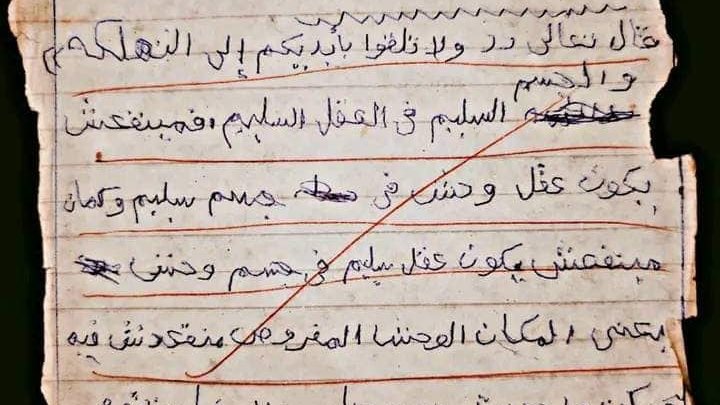 قال تعالى (( ولا تلقوا بأيديكم إلى التهلكة ))
والجسم
السليم فى العقل السليم، فمينفعش
يكون عقل وحش فى جسم سليم وكمان
مينفعش يكون عقل سليم فى جسم وحش
يعنى المكان الوحش المفروض منقعدش فيه